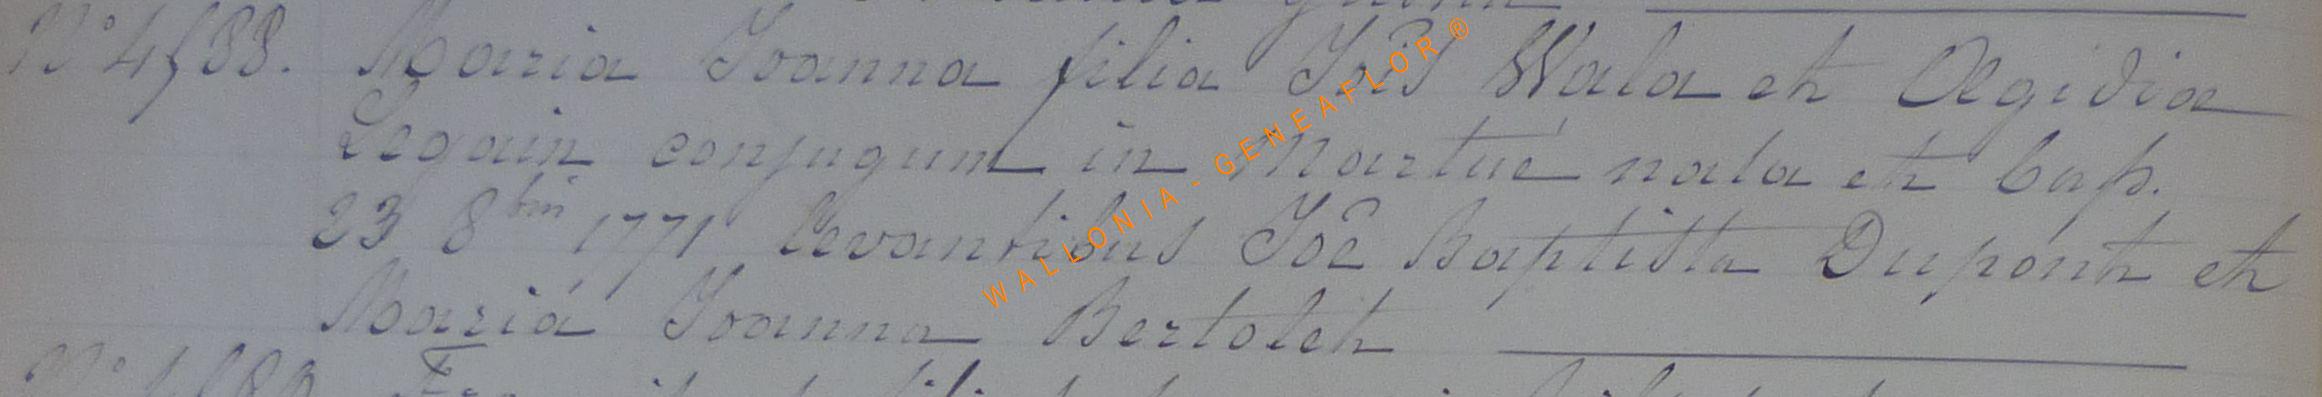 N° 4588. Maria Joanna filia Jois Wala et Aegidia
Legain conjugum in Martué nata et bap.
23 8bris 1771 levantibus Joe Baptista Dupont et
Maria Joanna Bertolet
WALLONIA - GENEAFLOR ®